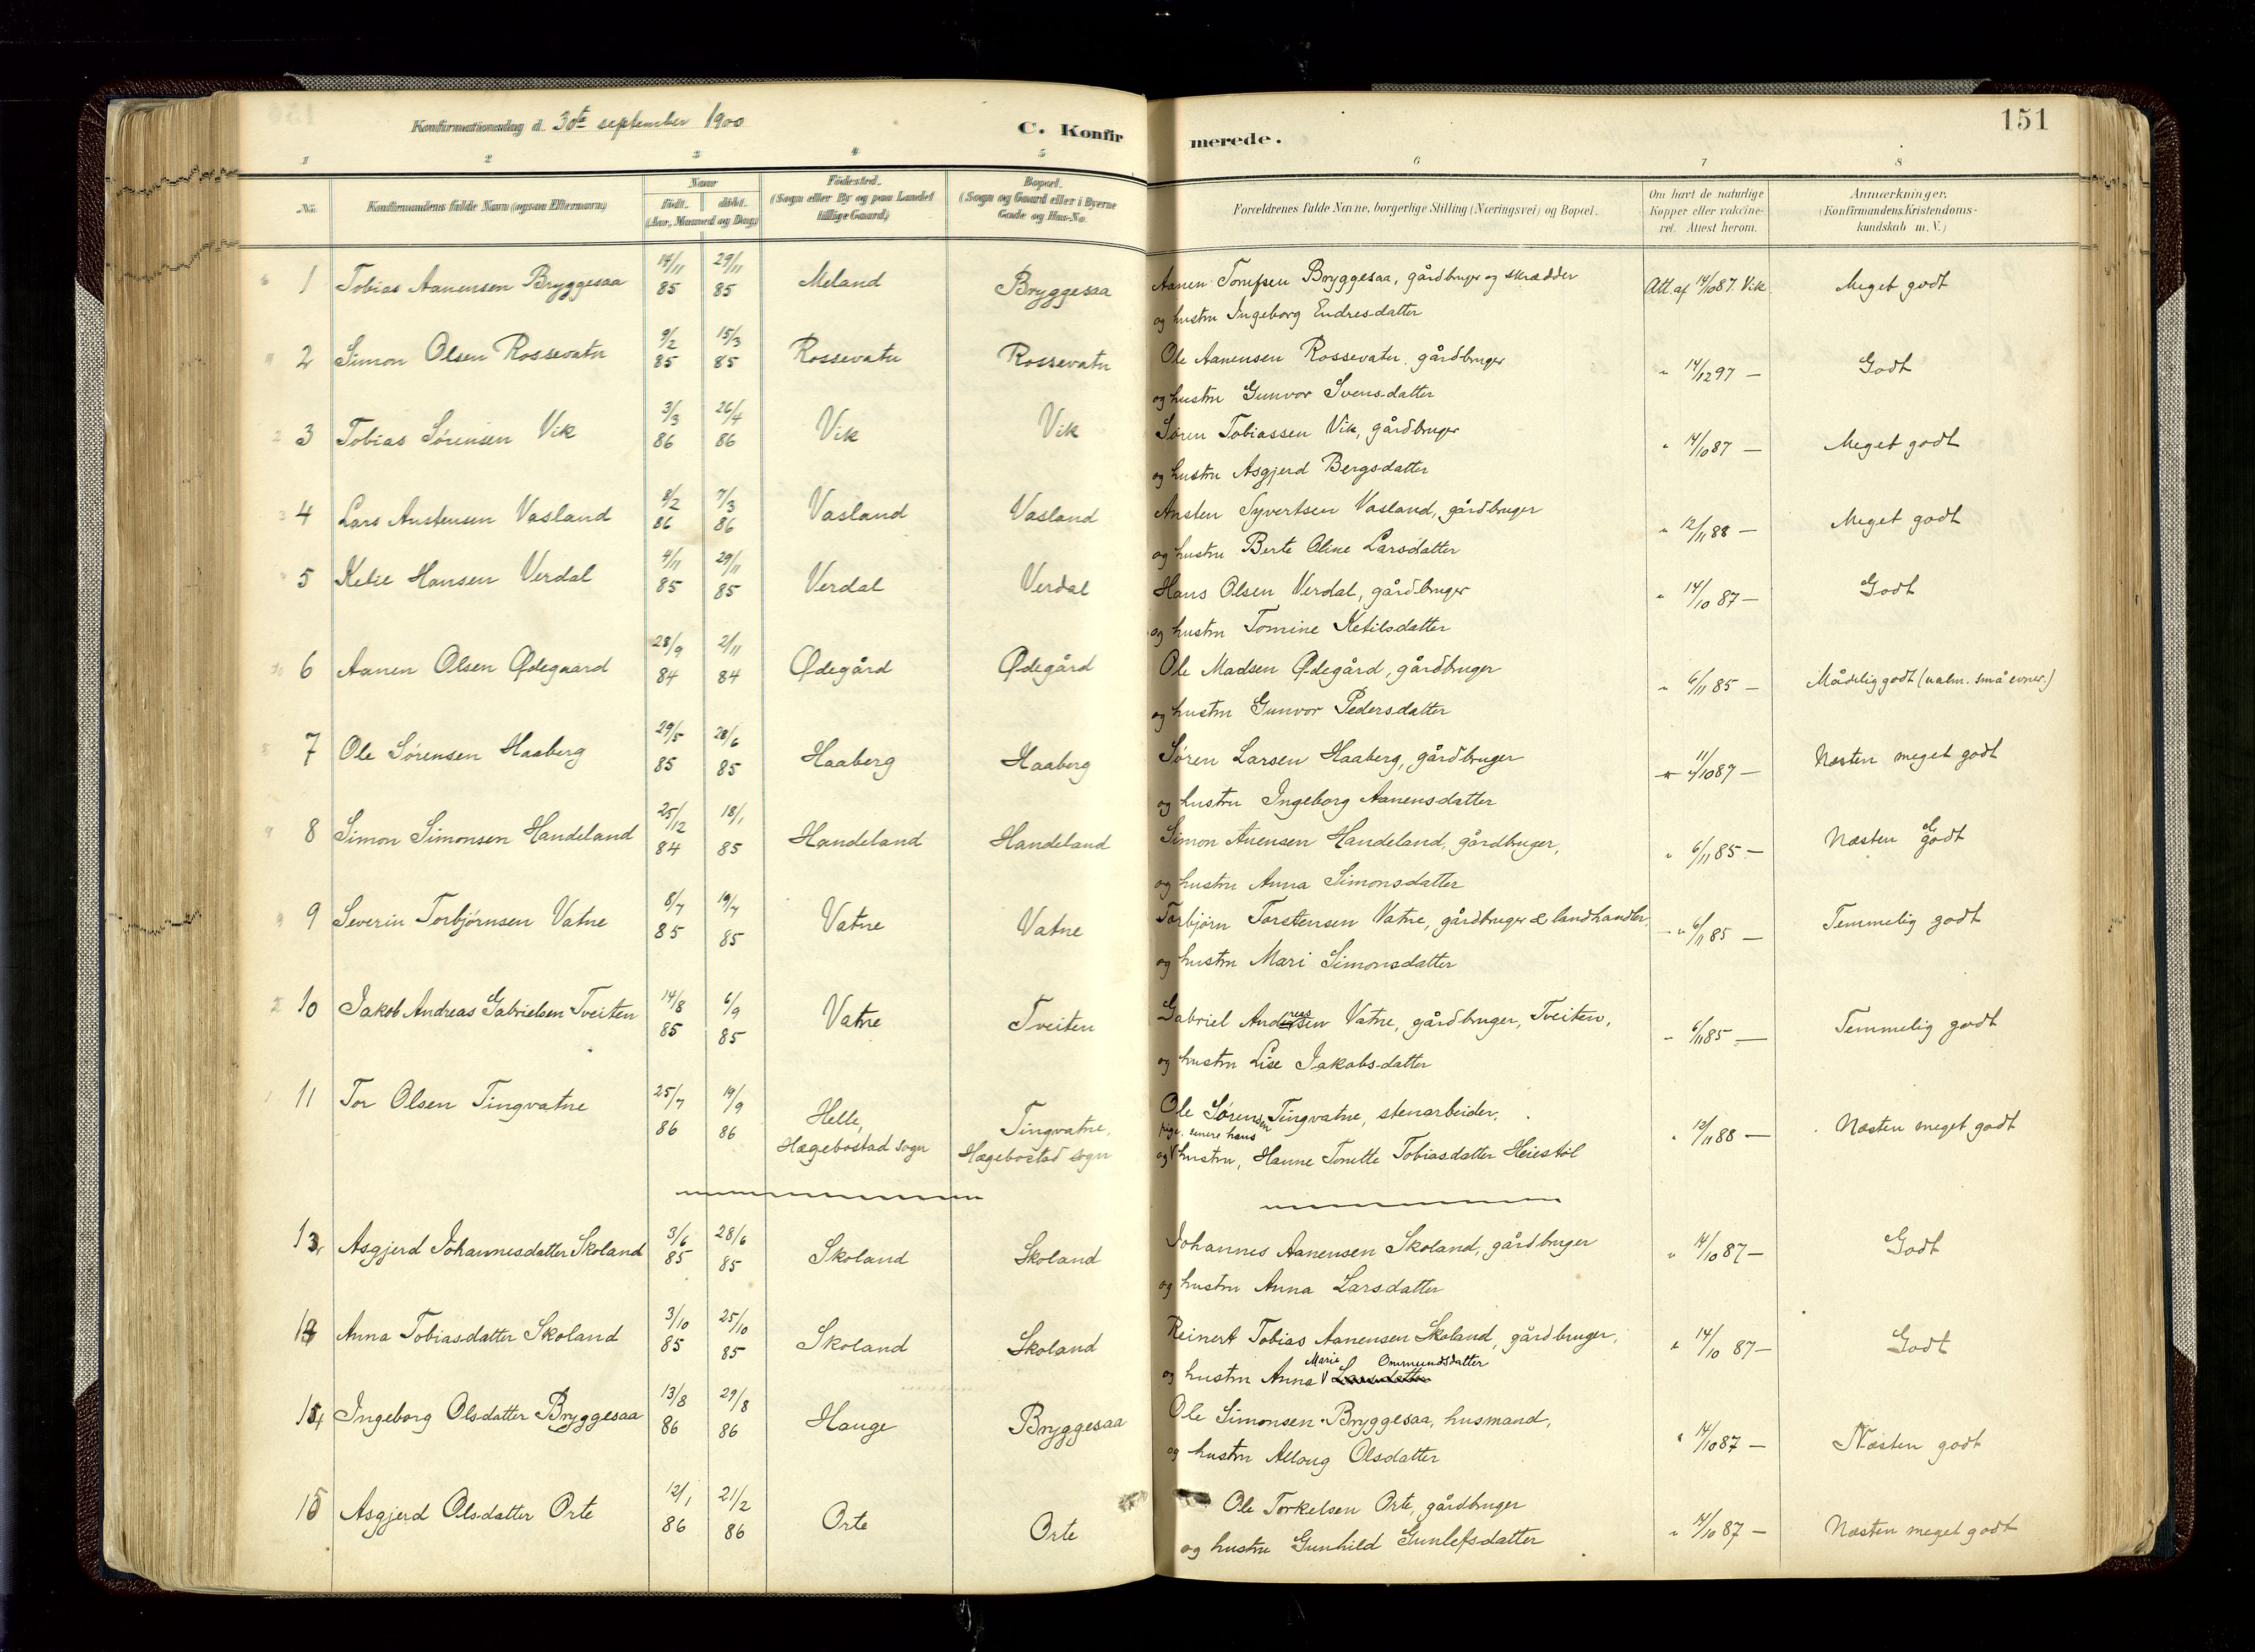 151
Konfirmationsdag d. 30te september 1900
C. Konfirmerede.
1 2 3 4 5 6 7 8
No. Konfirmandens fulde Navn (ogsaa Efternavn) Naar født. døbt. (Aar, Maaned og Dag) Fødested. (Sogn eller By og paa Landet tillige Gaard) Bopæl. (Sogn og Gaard eller i Byerne Gade og Hus-No. Forældrenes fulde Navne, borgerlige Stilling (Næringsvei) og Bopæl. Om havt de naturlige Kopper eller vaksine- ret. Attest herom. Anmærkninger. (Konfirmandens Kristendoms- kundskab m. V.)
1 Tobias Aanensen Bryggesaa 14/11 85 29/11 85 Meland Bryggesaa Aanen Tonnesen Bryggesaa, gårdbruger og skrædder Att. af 14/10 87. Vik Meget godt
og hustru Ingeborg Endresdatter
2 Simon Olsen Rossevatn 9/2 85 15/3 85 Rossevatn Rossevatn Ole Aanensen Rossevatn, gårdbruger " 14/12 97 — Godt
og hustru Gunvor Svensdatter
3 Tobias Sørensen Vik 3/3 86 26/4 86 Vik Vik Søren Tobiassen Vik, gårdbruger " 14/10 87 — Meget godt
og hustru Asgjerd Bergsdatter
4 Lars Austensen Vasland 8/2 86 7/3 86 Vasland Vasland Austen Syvertsen Vasland, gårdbruger " 12/11 88 — Meget godt
og hustru Berte Oline Larsdatter
5 Ketil Hansen Verdal 4/11 85 29/11 85 Verdal Verdal Hans Olsen Verdal, gårdbruger " 14/10 87 — Godt
og hustru Tomine Ketilsdatter
6 Aanen Olsen Ødegaard 28/9 84 2/11 84 Ødegård Ødegård Ole Madsen Ødegård, gårdbruger " 6/11 85 — Mådelig godt (ualm. små evner.)
og hustru Gunvor Pedersdatter
7 Ole Sørensen Haaberg 29/5 85 28/6 85 Haaberg Haaberg Søren Larsen Haaberg, gårdbruger " 11/10 87 — Næsten meget godt
og hustru Ingeborg Aanensdatter
8 Simon Simonsen Handeland 25/12 84 18/1 85 Handeland Handeland Simon Anensen Handeland, gårdbruger, " 6/11 85 — Næsten Godt
og hustru Anna Simonsdatter
9 Severin Torbjørnsen Vatne 8/7 85 19/7 85 Vatne Vatne Torbjørn Torstensen Vatne, gårdbruger & landhandler, " 6/11 85 — Temmelig godt
og hustru Mari Simonsdatter
10 Jakob Andreas Gabrielsen Tveiten 14/8 85 6/9 85 Vatne Tveiten Gabriel Andreassen Vatne, gårdbruger, Tveiten, " 6/11 85 — Temmelig godt
og hustru Lise Jakobsdatter
11 Tor Olsen Tingvatne 25/7 86 19/9 86 Helle, Hægebostad sogn Tingvatne, Hægebostad sogn Ole Sørensen Tingvatne, stenarbeider, " 12/11 88 — Næsten meget godt
og pige, senere hans hustru, Hanne Tonette Tobiasdatter Heiestøl
12 Asgjerd Johannesdatter Skoland 3/6 85 28/6 85 Skoland Skoland Johannes Aanensen Skoland, gårdbruger " 14/10 87 — Godt
og hustru Anna Larsdatter
13 Anna Tobiasdatter Skoland 3/10 85 25/10 85 Skoland Skoland Reinert Tobias Aanensen Skoland, gårdbruger, " 14/10 87 — Godt
og hustru Anna Marie Ommundsdatter
14 Ingeborg Olsdatter Bryggesaa 13/8 86 29/8 86 Hauge Bryggesaa Ole Simonsen Bryggesaa, husmand, " 14/10 87 — Næsten godt
og hustru Allaug Olsdatter
15 Asgjerd Olsdatter Orte 12/1 86 21/2 86 Orte Orte Ole Torkelsen Orte, gårdbruger " 14/10 87 — Næsten meget godt
og hustru Gunhild Gunlefsdatter